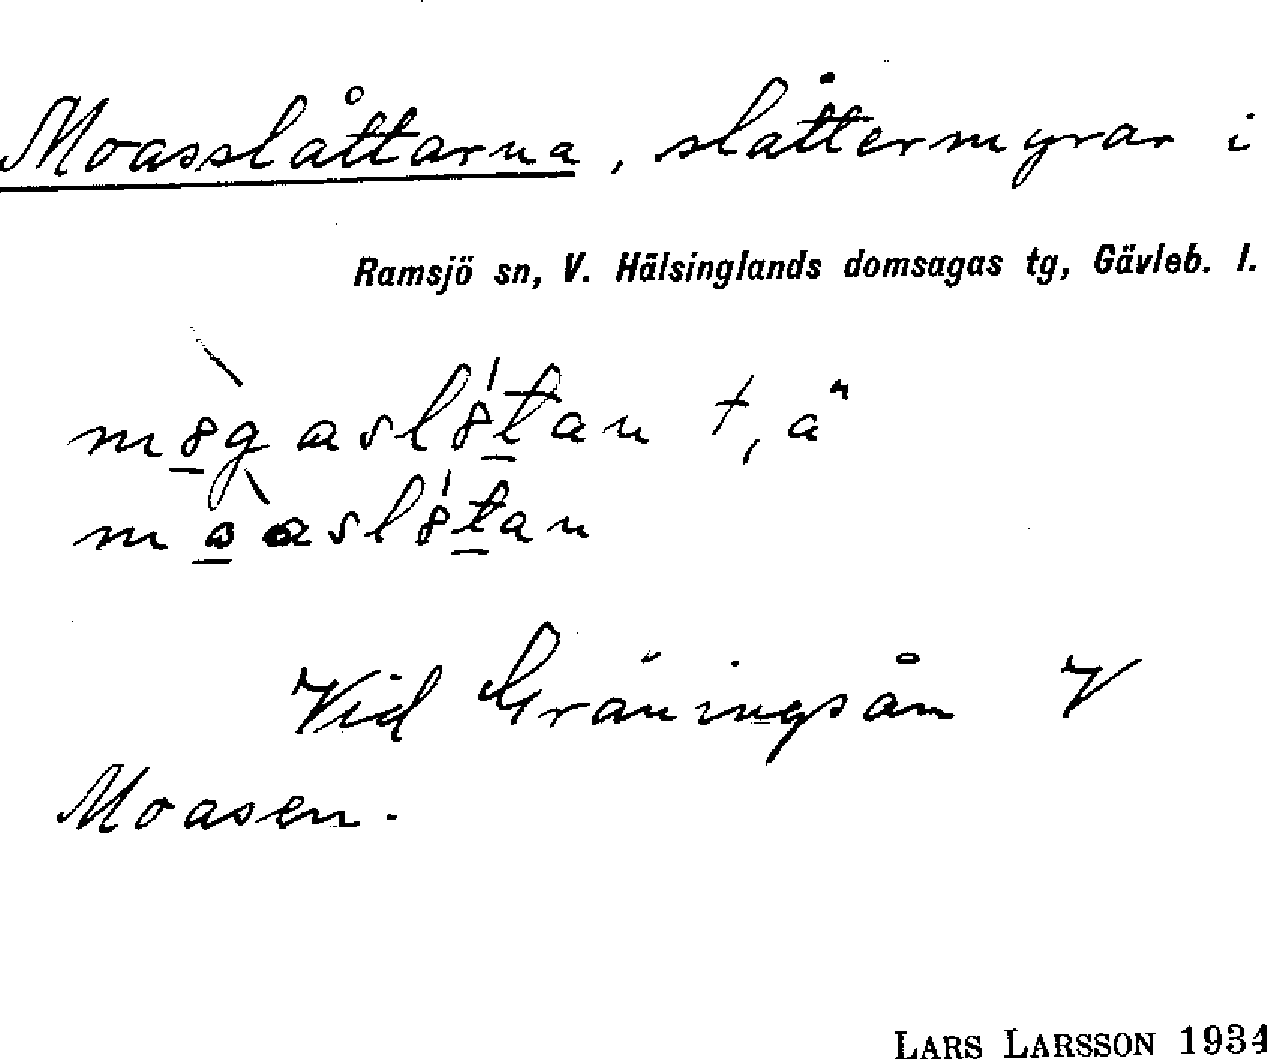 Moasslåttarna, slåttermyrar i
Ramsjö sn, V. Hälsinglands domsagas tg, Gävleb. l.
Vid Gräningsån V
Moasen.
LARS LARSSON 1934